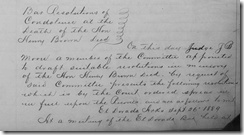 Bar Resolutions of
Condolence at the
Death of The Hon
Henry Brown decd
On this day Judge J B
Moore a member of the Committee appointed
to draft suitable resolutions in memory
of The Hon Henry Brown decd by request of
said Committee presents the following resolutions
which is by the Court ordered spread in
full upon the
El Dorado Sept 26 1884
At a meeting of the El Dorado Bar